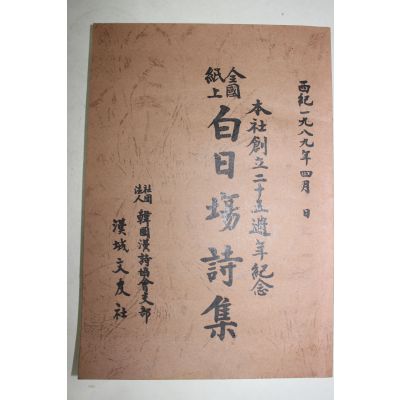 西紀一九八九年四月 日
本社創立二十五週年紀念
全國
紙上
白日場詩集
社団
法人
韓國漢詩協會支部
漢城文友社